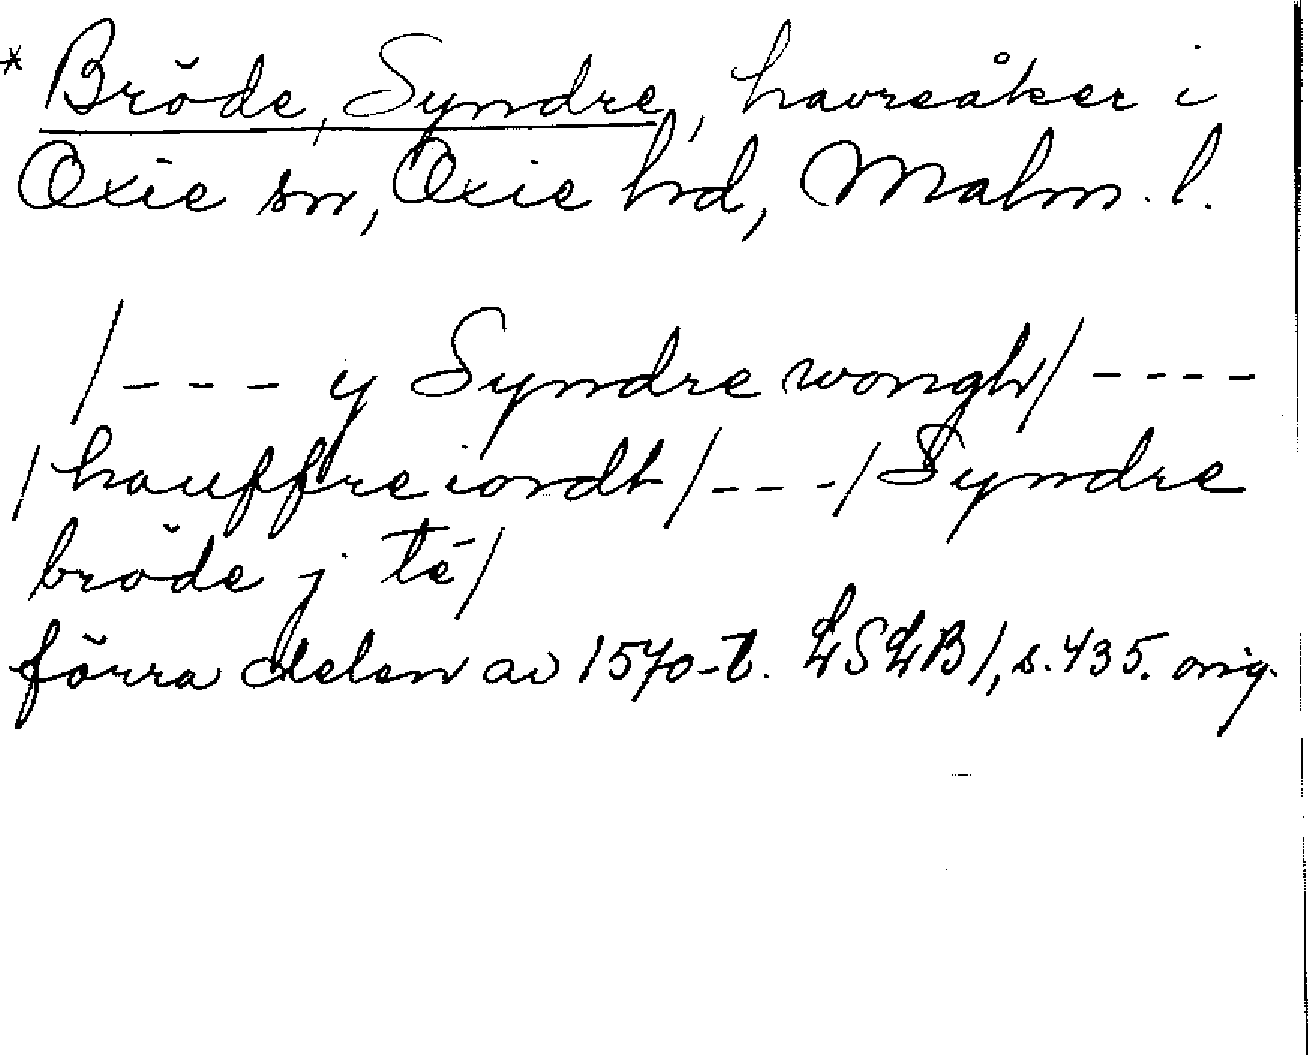 * Bröde, Syndre, havreåker i
Oxie sn, Oxie hd, Malm. l.
/---- y Syndre wongh/ ----
/hauffre iordt/---/Syndre
bröde j té/
förra delen av 1570-t. LSLB1, s. 435. orig.